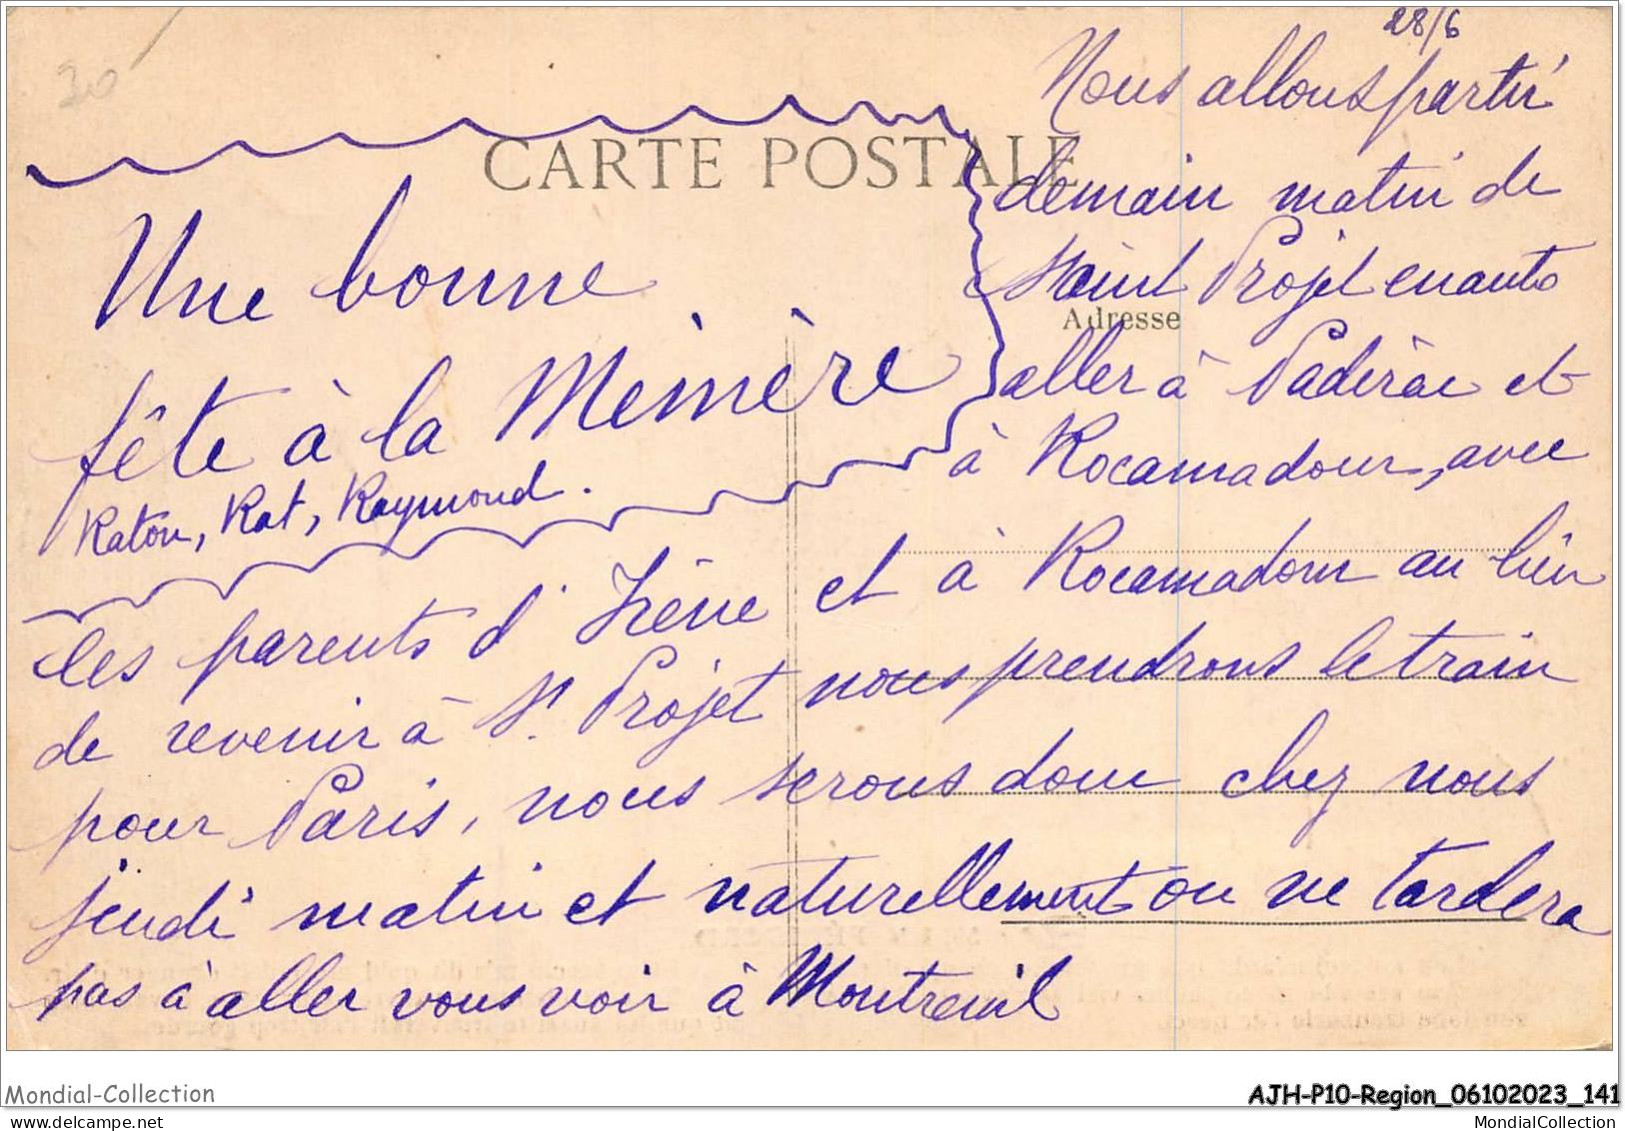 28/6
30
CARTE POSTALE
Adresse
Nous allons partir
demain matin de
Saint Projet en auto
aller à Padirac et
à Rocamadour, avec
Une bonne
fête à la Mémère
Katou, Kat, Raymond.
les parents d'Irène et à Rocamadour au lieu
de revenir à St. Projet nous prendrons le train
pour Paris, nous serons donc chez nous
jeudi matin et naturellement on ne tardera
pas à aller vous voir à Montreuil
Mondial-Collection
AJH-P10-Region_06102023_141
MondialCollection